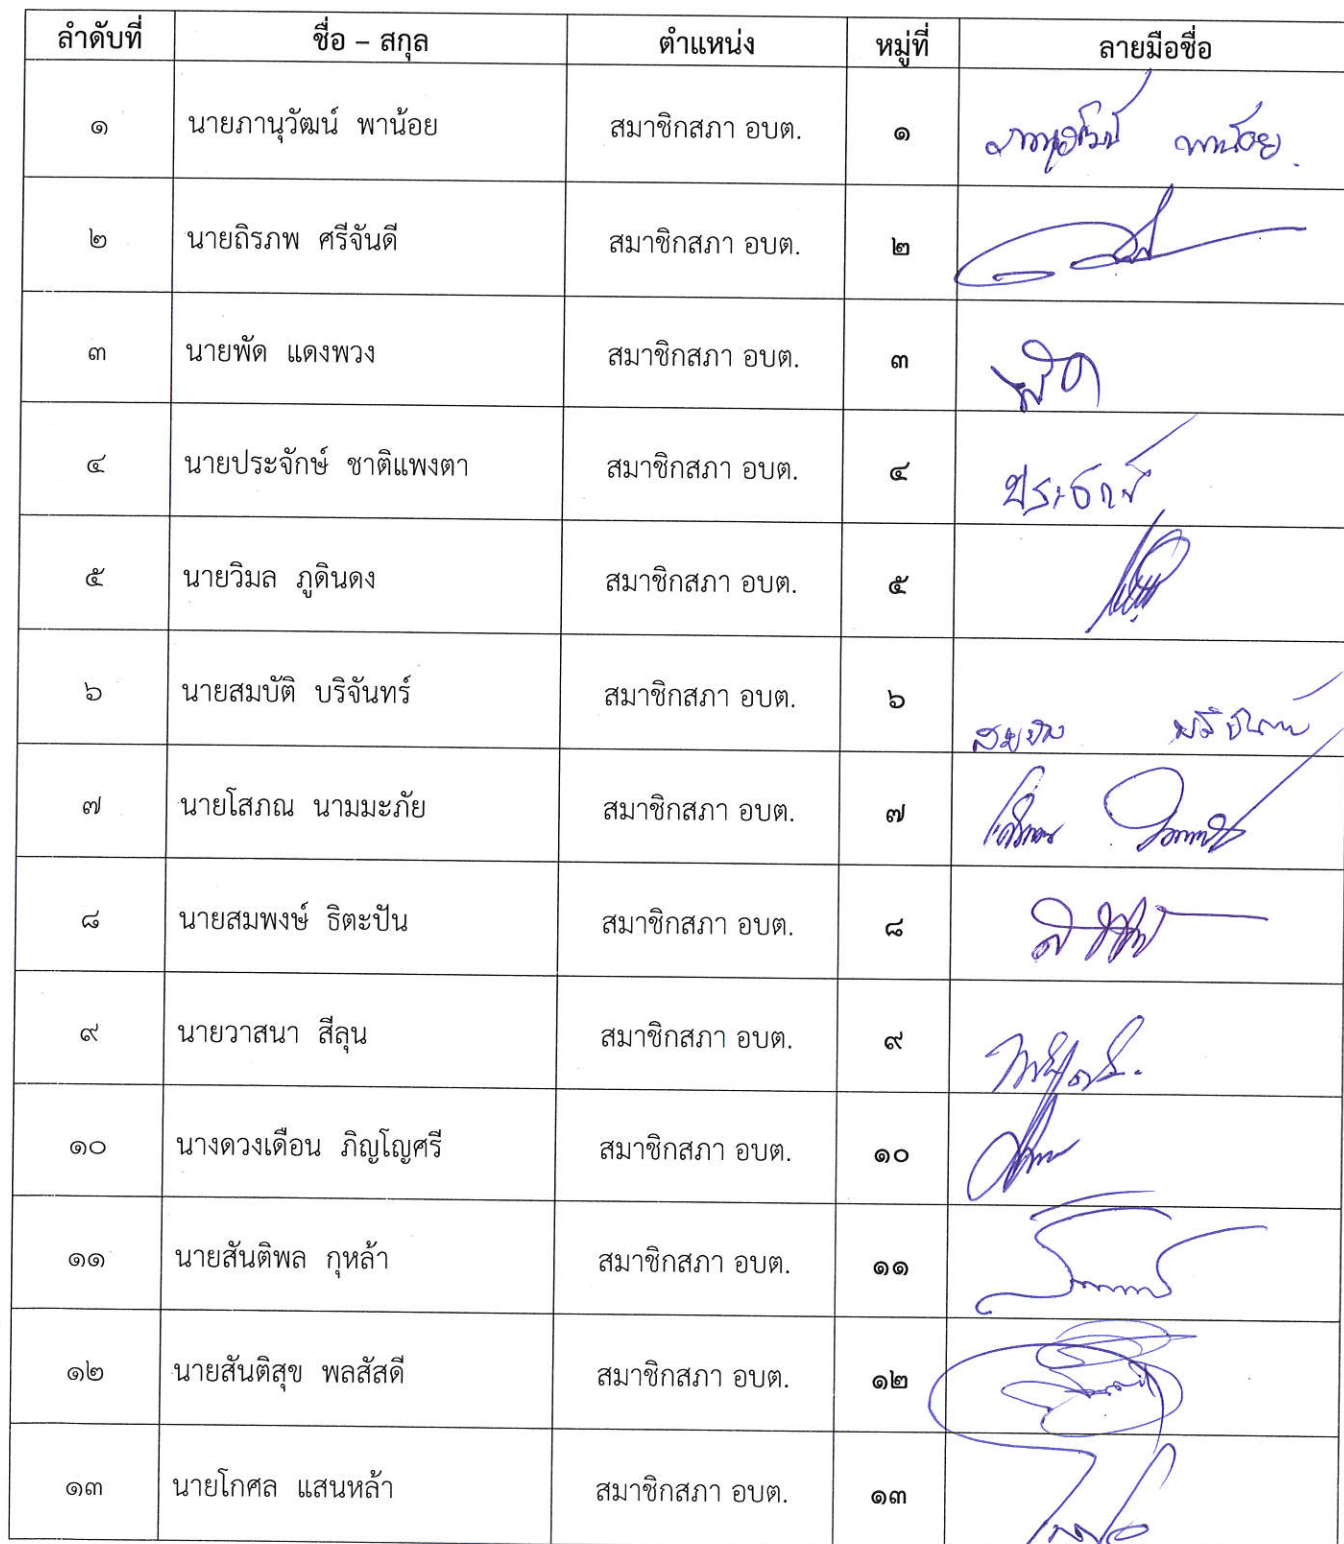 ลำดับที่ ชื่อ – สกุล ตำแหน่ง หมู่ที่ ลายมือชื่อ
๑ นายภานุวัฒน์ พาน้อย สมาชิกสภา อบต. ๑ ภานุวัฒน์ พาน้อย
๒ นายถิรภพ ศรีจันดี สมาชิกสภา อบต. ๒
๓ นายพัด แดงพวง สมาชิกสภา อบต. ๓ พัด
๔ นายประจักษ์ ชาติแพงตา สมาชิกสภา อบต. ๔ ประจักษ์
๕ นายวิมล ภูดินดง สมาชิกสภา อบต. ๕
๖ นายสมบัติ บริจันทร์ สมาชิกสภา อบต. ๖ สมบัติ บริจันทร์
๗ นายโสภณ นามมะภัย สมาชิกสภา อบต. ๗
๘ นายสมพงษ์ ธิตะปัน สมาชิกสภา อบต. ๘
๙ นายวาสนา สีลุน สมาชิกสภา อบต. ๙
๑๐ นางดวงเดือน ภิญโญศรี สมาชิกสภา อบต. ๑๐
๑๑ นายสันติพล กุหล้า สมาชิกสภา อบต. ๑๑
๑๒ นายสันติสุข พลสัสดี สมาชิกสภา อบต. ๑๒
๑๓ นายโกศล แสนหล้า สมาชิกสภา อบต. ๑๓